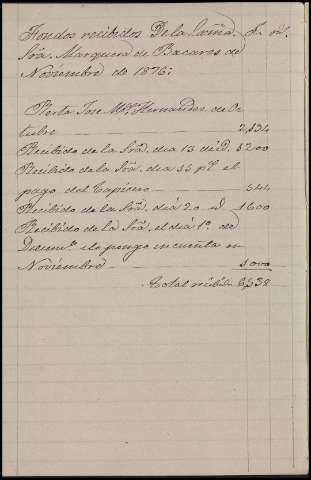 Fondos recibidos De la Exma.
Sra. Marquesa de Bacares de
Noviembre de 1876:
Resta Jose Ma. Hernandez de Oc
tubre 2,134
Recibido de la Sra. dia 13 de id. 3200
Recibido de la Sra. dia pa. el
pago del Tapicero 544
Recibido de la Sra. dia 20 id 1600
Recibido de la Sra. el dia 1o. de
Diciem.e lo pongo en cuenta en
Noviembre
Total recibido